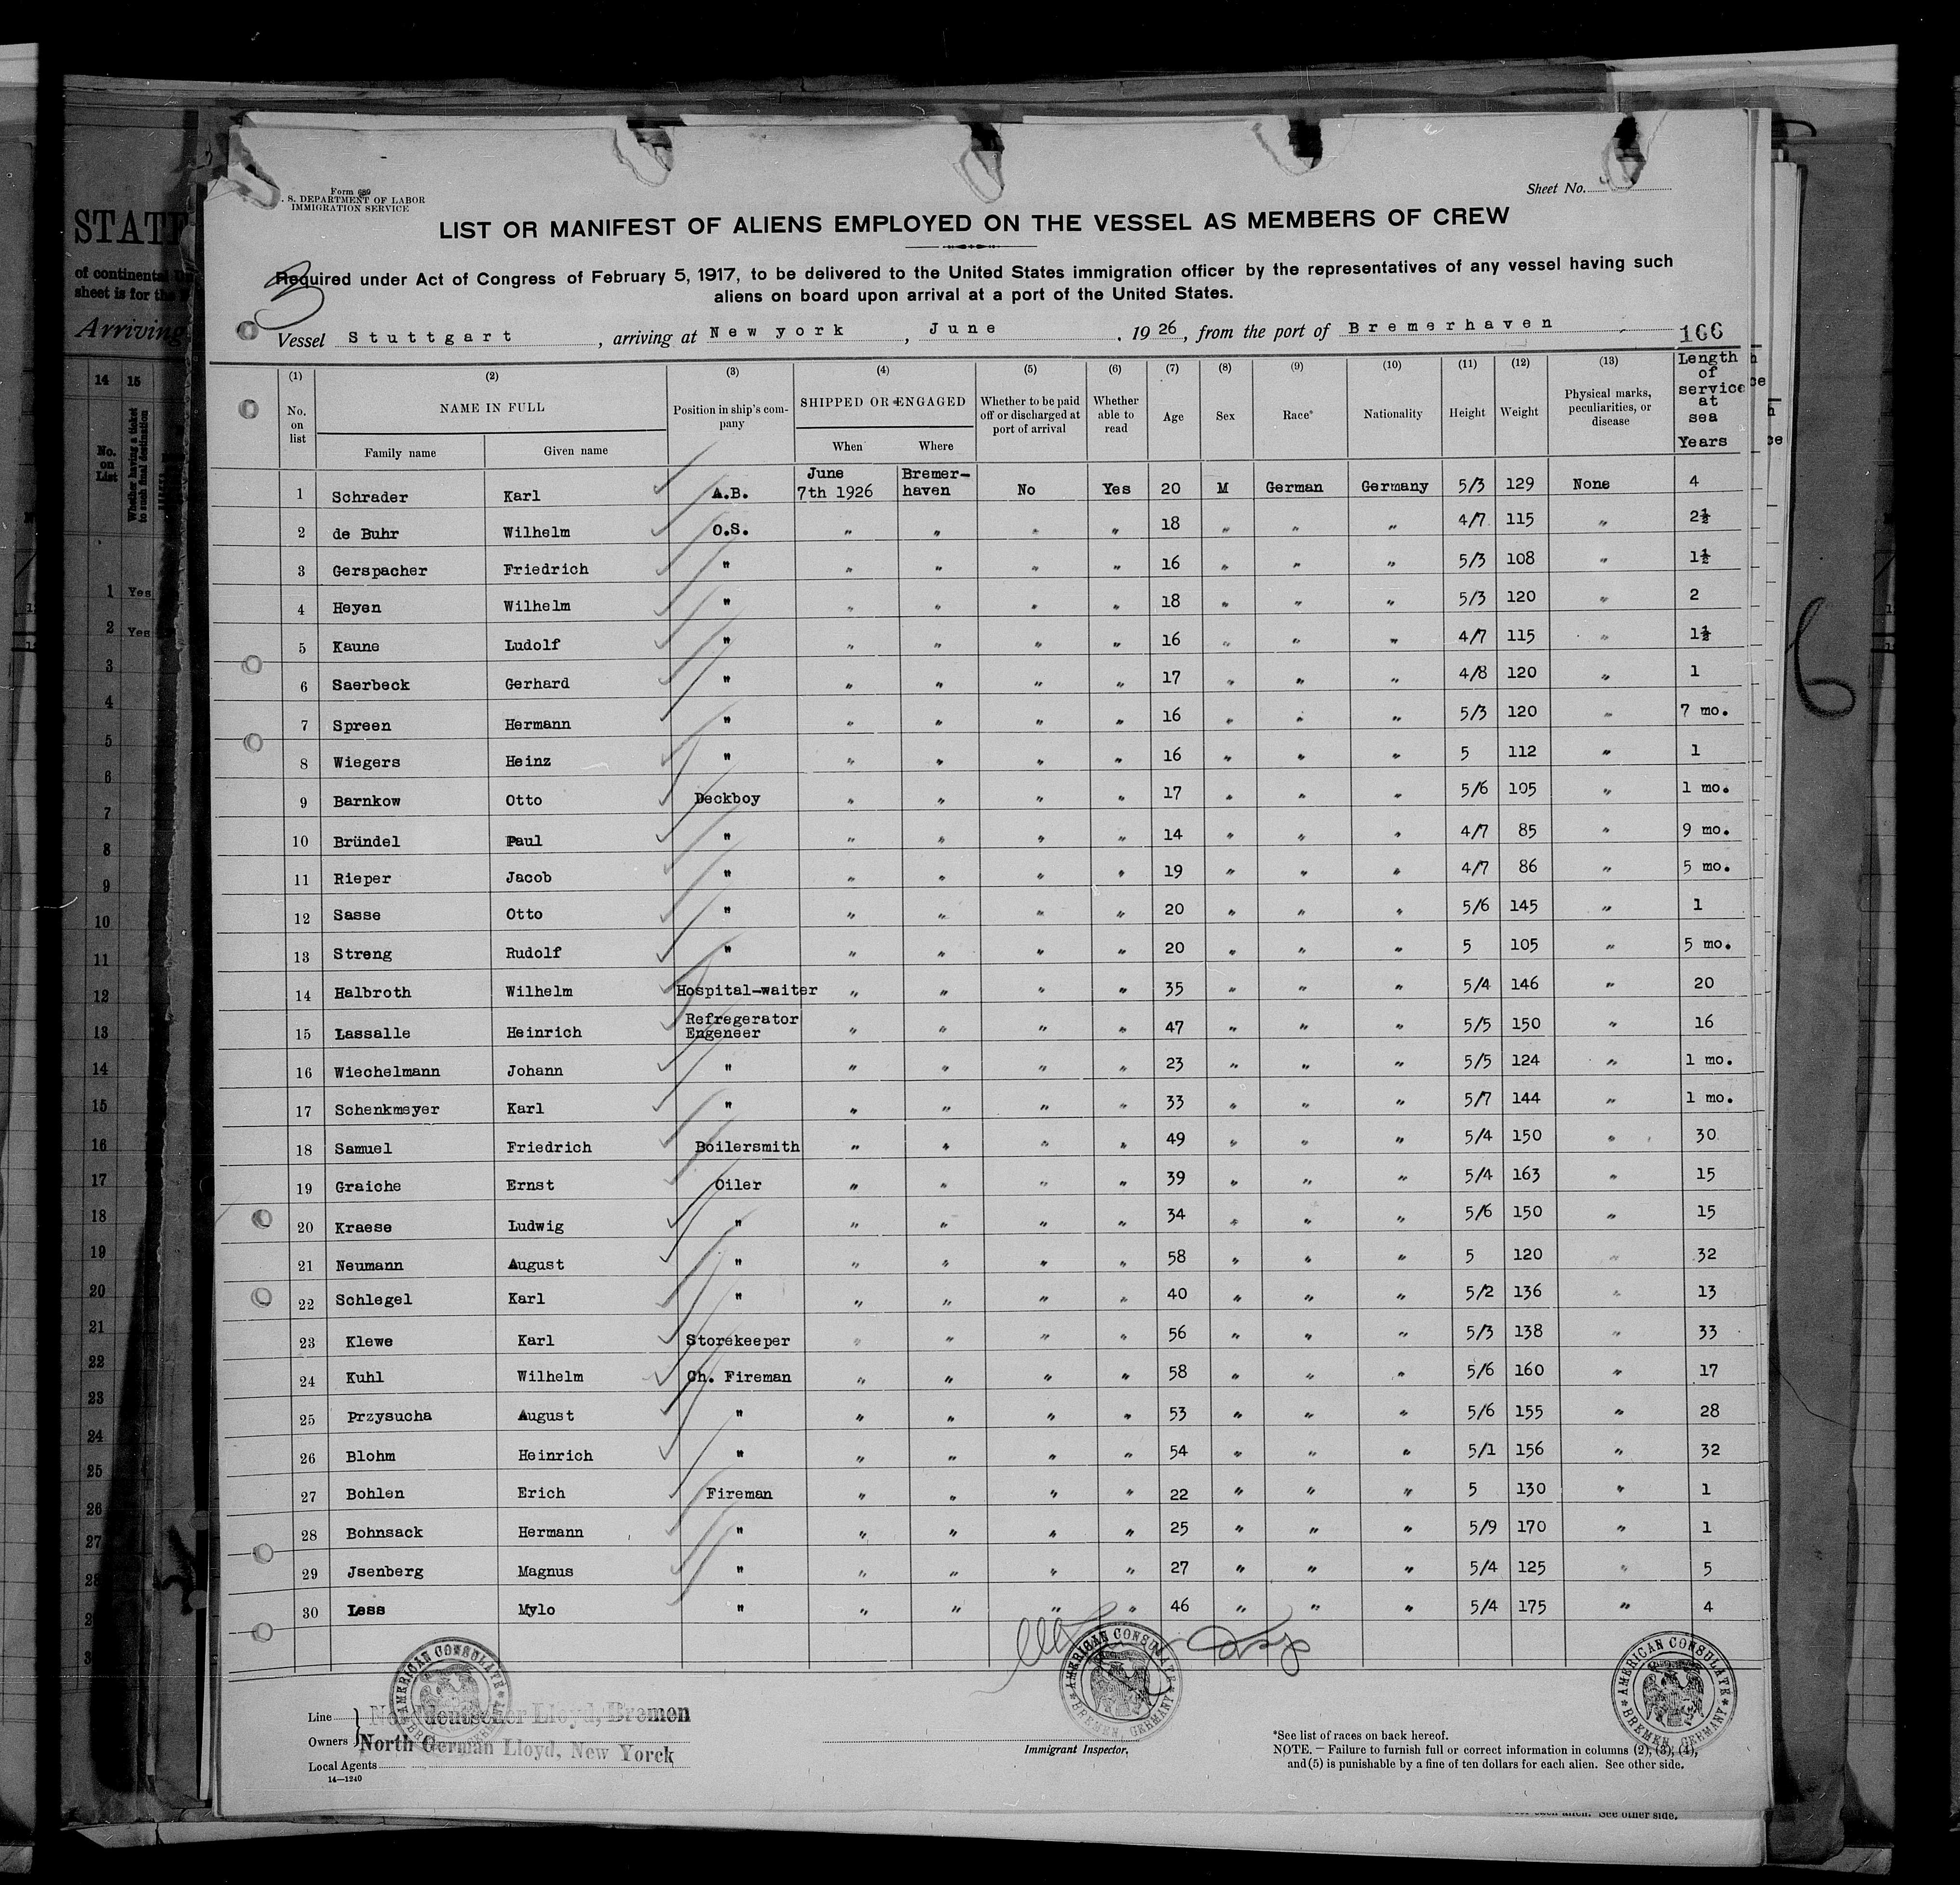 Form 689
. S. DEPARTMENT OF LABOR
IMMIGRATION SERVICE
Sheet No.
LIST OR MANIFEST OF ALIENS EMPLOYED ON THE VESSEL AS MEMBERS OF CREW
Required under Act of Congress of February 5, 1917, to be delivered to the United States immigration officer by the representatives of any vessel having such
aliens on board upon arrival at a port of the United States.
3
Vessel Stuttgart, arriving at New york, June, 1926, from the port of Bremerhaven 166
(1) (2) (3) (4) (5) (6) (7) (8) (9) (10) (11) (12) (13)
No. on list
NAME IN FULL
Family name Given name
Position in ship's company
SHIPPED OR ENGAGED
When Where
Whether to be paid off or discharged at port of arrival
Whether able to read
Age Sex Race* Nationality Height Weight
Physical marks, peculiarities, or disease
Length of service at sea Years
1 Schrader Karl A.B. June 7th 1926 Bremer-haven No Yes 20 M German Germany 5/3 129 None 4
2 de Buhr Wilhelm O.S. " " " " 18 " " " 4/7 115 " 2½
3 Gerspacher Friedrich " " " " " 16 " " " 5/3 108 " 1½
4 Heyen Wilhelm " " " " " 18 " " " 5/3 120 " 2
5 Kaune Ludolf " " " " " 16 " " " 4/7 115 " 1½
6 Saerbeck Gerhard " " " " " 17 " " " 4/8 120 " 1
7 Spreen Hermann " " " " " 16 " " " 5/3 120 " 7 mo.
8 Wiegers Heinz " " " " " 16 " " " 5 112 " 1
9 Barnkow Otto Deckboy " " " " 17 " " " 5/6 105 " 1 mo.
10 Bründel Paul " " " " " 14 " " " 4/7 85 " 9 mo.
11 Rieper Jacob " " " " " 19 " " " 4/7 86 " 5 mo.
12 Sasse Otto " " " " " 20 " " " 5/6 145 " 1
13 Streng Rudolf " " " " " 20 " " " 5 105 " 5 mo.
14 Halbroth Wilhelm Hospital-waiter " " " " 35 " " " 5/4 146 " 20
15 Lassalle Heinrich Refregerator Engeneer " " " " 47 " " " 5/5 150 " 16
16 Wiechelmann Johann " " " " " 23 " " " 5/5 124 " 1 mo.
17 Schenkmeyer Karl " " " " " 33 " " " 5/7 144 " 1 mo.
18 Samuel Friedrich Boilersmith " " " " 49 " " " 5/4 150 " 30
19 Graiche Ernst Oiler " " " " 39 " " " 5/4 163 " 15
20 Kraese Ludwig " " " " " 34 " " " 5/6 150 " 15
21 Neumann August " " " " " 58 " " " 5 120 " 32
22 Schlegel Karl " " " " " 40 " " " 5/2 136 " 13
23 Klewe Karl Storekeeper " " " " 56 " " " 5/3 138 " 33
24 Kuhl Wilhelm Ch. Fireman " " " " 58 " " " 5/6 160 " 17
25 Przysucha August " " " " " 53 " " " 5/6 155 " 28
26 Blohm Heinrich " " " " " 54 " " " 5/1 156 " 32
27 Bohlen Erich Fireman " " " " 22 " " " 5 130 " 1
28 Bohnsack Hermann " " " " " 25 " " " 5/9 170 " 1
29 Jsenberg Magnus " " " " " 27 " " " 5/4 125 " 5
30 Less Mylo " " " " " 46 " " " 5/4 175 " 4
AMERICAN CONSULATE BREMEN, GERMANY
AMERICAN CONSULATE BREMEN, GERMANY
AMERICAN CONSULATE BREMEN, GERMANY
Line Norddeutscher Lloyd, Bremen
Owners North German Lloyd, New Yorck
Local Agents
14—1240
Immigrant Inspector.
*See list of races on back hereof.
NOTE.—Failure to furnish full or correct information in columns (2), (3), (4),
and (5) is punishable by a fine of ten dollars for each alien. See other side.
See other side.
STATE
of continental
sheet is for the
Arriving
14 15
No. on List
Whether having a ticket to such final destination
1 Yes
2 Yes
3
4
5
6
7
8
9
10
11
12
13
14
15
16
17
18
19
20
21
22
23
24
25
26
27
6